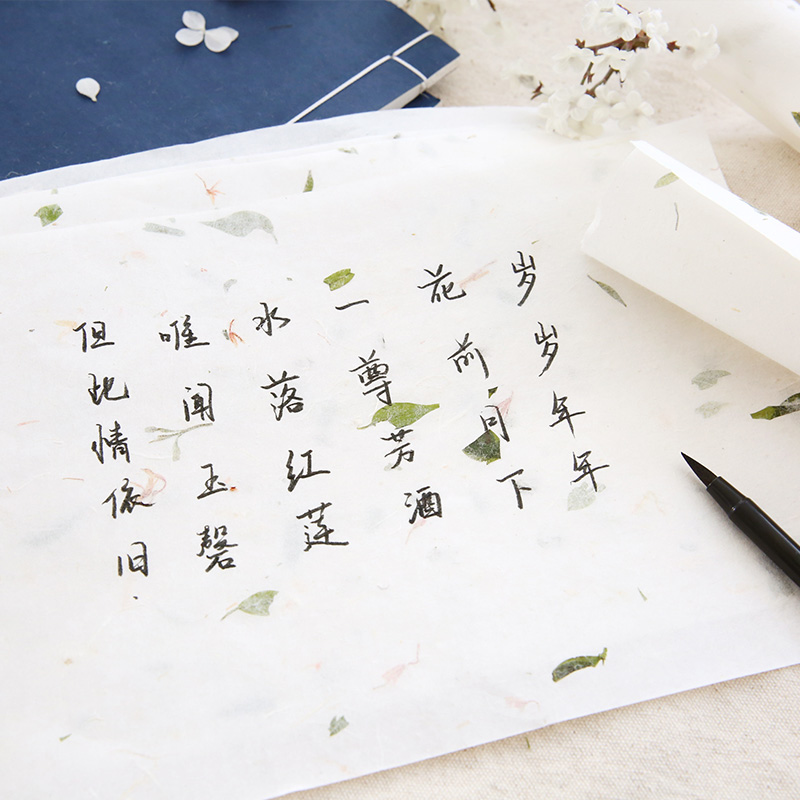 岁岁年年
花前月下
一尊芳酒
水落红莲
唯闻玉磬
但此情依旧.